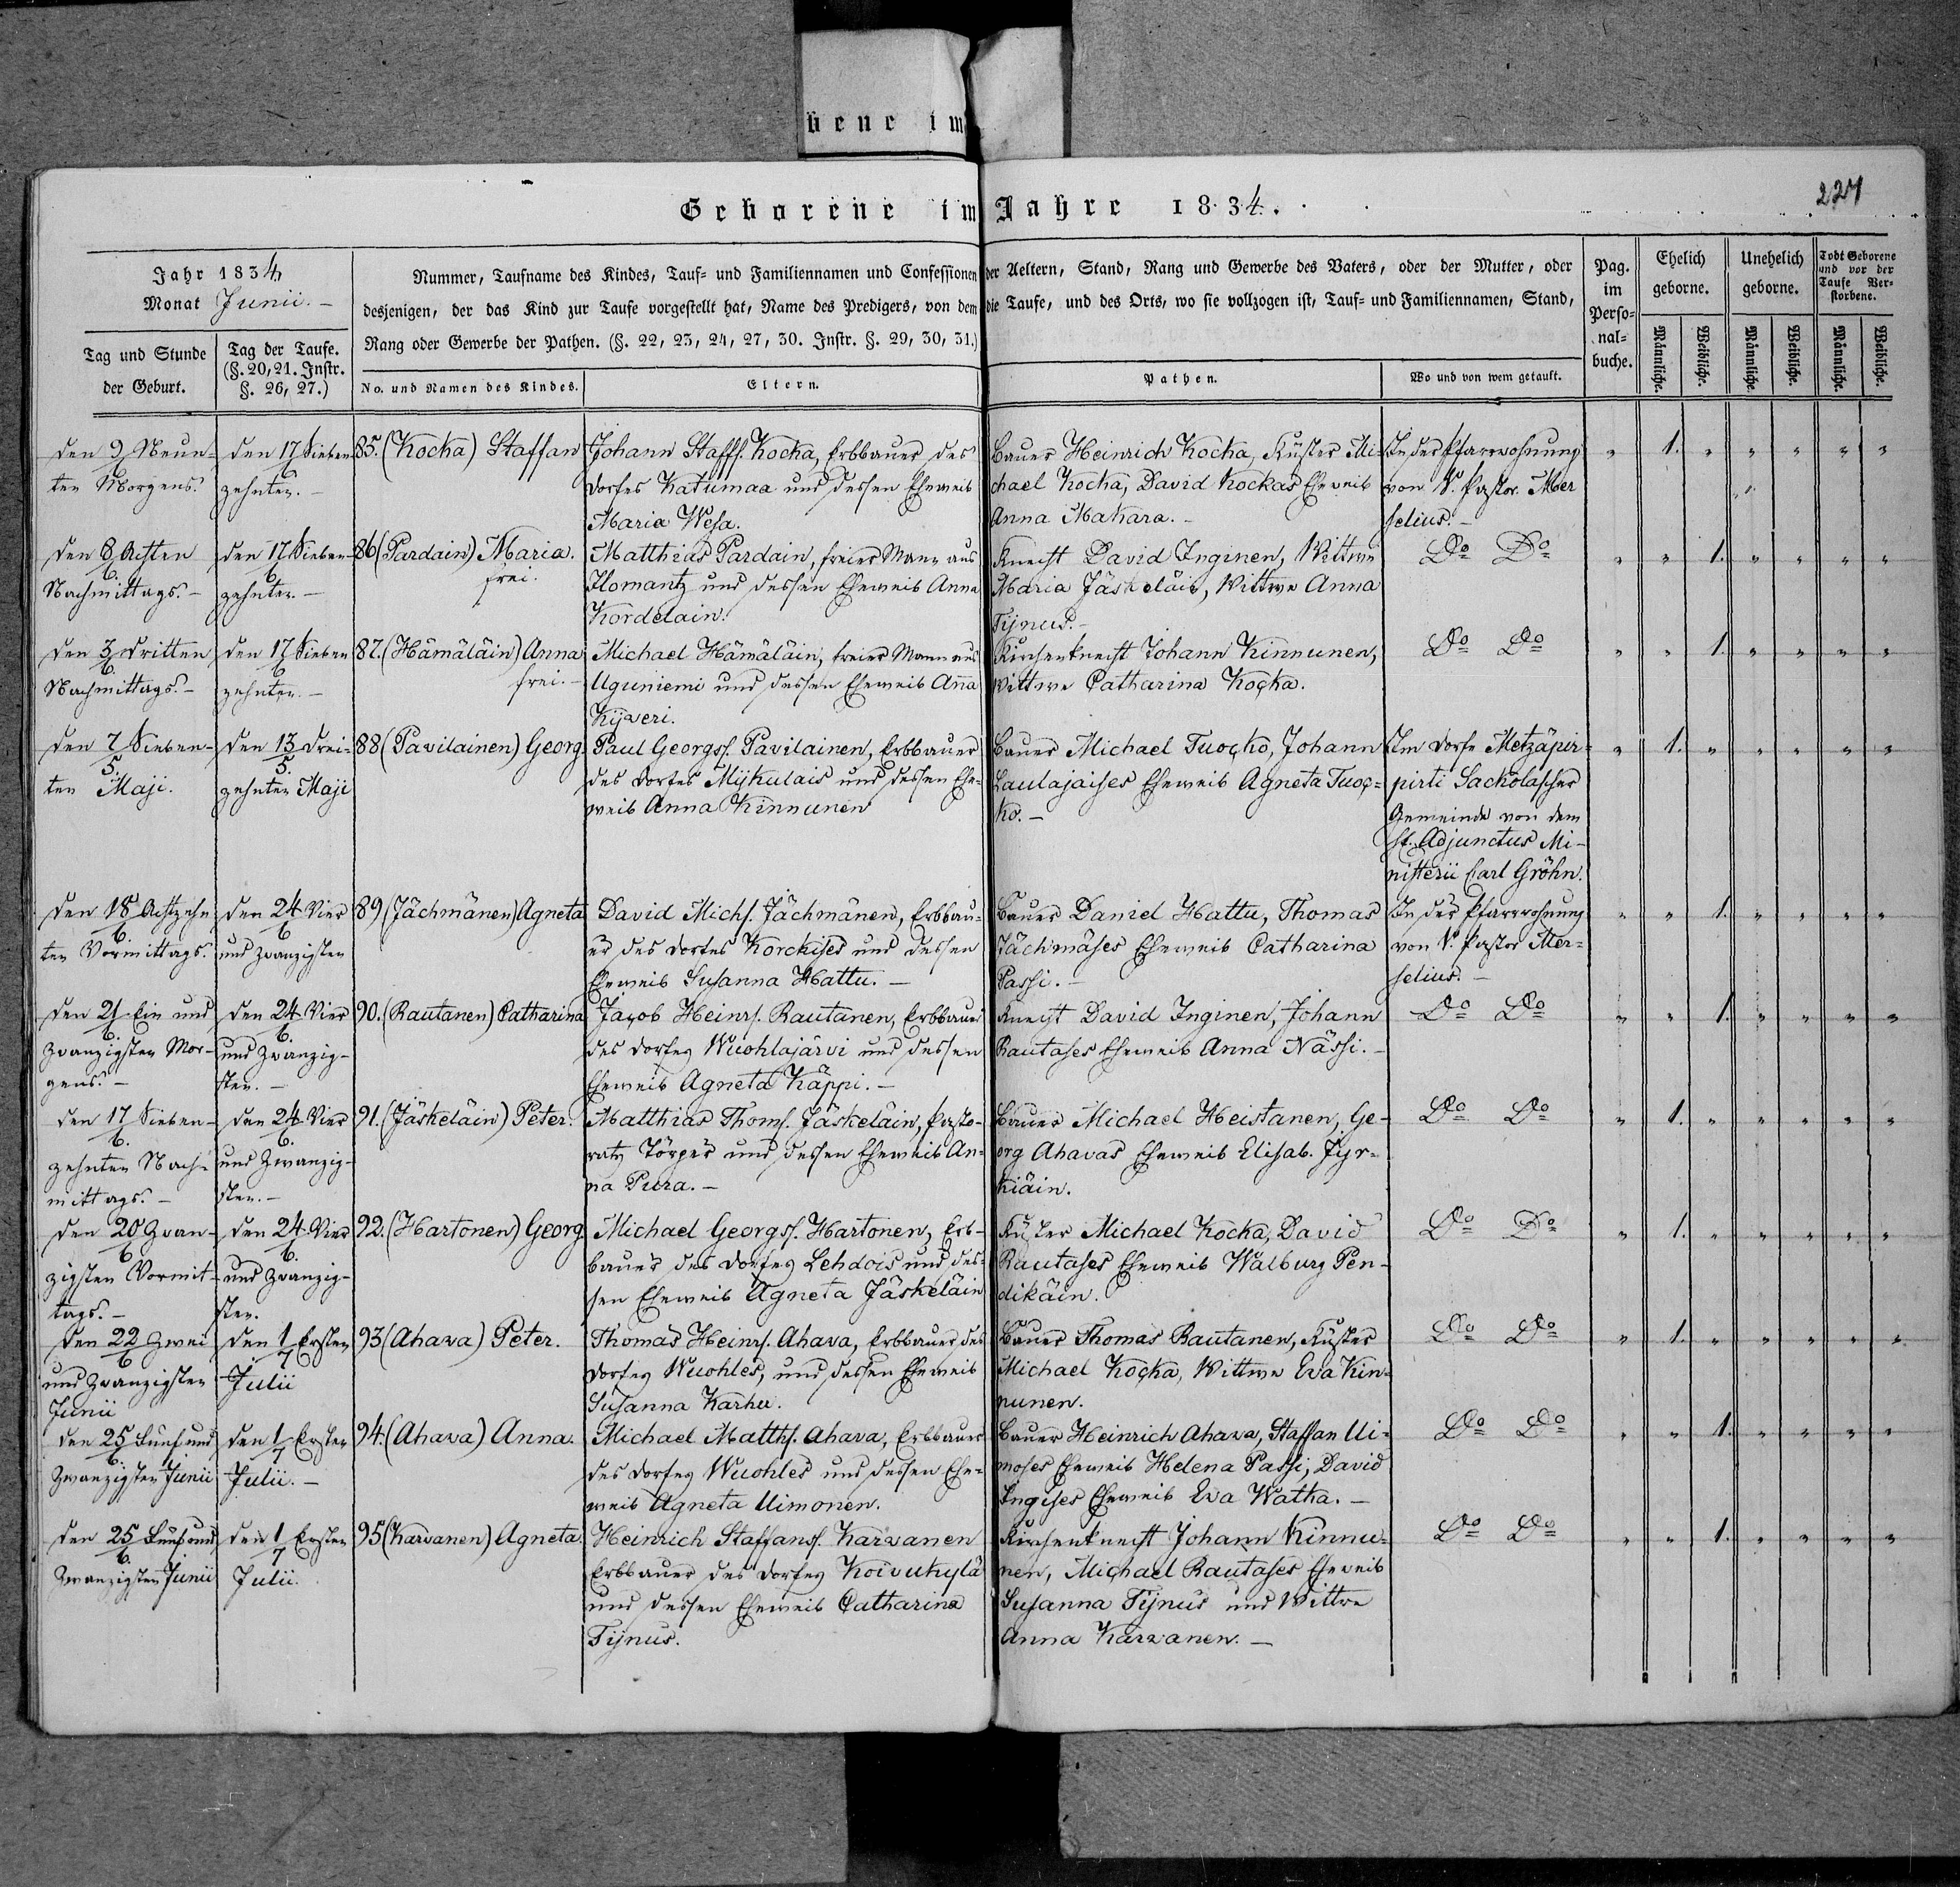 bene im
Geborene im Jahre 1834.
227
Jahr 1834
Monat Junii. –
Tag und Stunde
der Geburt.
Tag der Taufe.
(§. 20, 21. Instr.
§. 26, 27.)
Nummer, Taufname des Kindes, Tauf- und Familiennamen und Confessionen der Aeltern, Stand, Rang und Gewerbe des Vaters, oder der Mutter, oder
desjenigen, der das Kind zur Taufe vorgestellt hat, Name des Predigers, von dem die Taufe, und des Orts, wo sie vollzogen ist, Tauf- und Familiennamen, Stand,
Rang oder Gewerbe der Pathen. (§. 22, 23, 24, 27, 30. Instr. §. 29, 30, 31.)
No. und Namen des Kindes.
Eltern.
Pathen.
Wo und von wem getauft.
Pag.
im
Perso-
nal-
buche.
Ehelich
geborne.
Unehelich
geborne.
Todt Geborene
und vor der
Taufe Ver-
storbene.
Männliche.
Weibliche.
Männliche.
Weibliche.
Männliche.
Weibliche.
den 9 Neun-
6.
ten Morgens.
den 17 Sieben
6
zehnten. –
85. (Kocka) Staffan
Johann Staffs. Kocka, Erbbauer des
Dorfes Katumaa und dessen Eheweib
Maria Wesa.
Bauer Heinrich Kocka, Küster Mi
chael Kocka, David Kockas Eheweib
Anna Makara. –
In der Pfarrwohnung
von V. Pastor Mer
selius. –
" 1. " " " " "
den 8 Achten
6.
Nachmittags. –
den 17 Sieben-
6.
zehnten –
86 (Pardain) Maria.
frei.
Matthias Pardain, freier Mann aus
Ilomantz und dessen Eheweib Anna
Kordelain.
Knecht David Inginen, Wittwe
Maria Jäskeläin, Wittwe Anna
Tijnus. –
Do Do
" " 1. " " " "
den 3 dritten
6.
Nachmittags. –
den 17 Sieben
6
zehnten. –
87. (Hämäläin) Anna
frei. –
Michael Hämäläin, freier Mann aus
Uguniemi und dessen Eheweib Anna
Kijveri.
Kirchenknecht Johann Kinnunen,
Wittwe Catharina Kocka.
Do Do
" " 1. " " " "
den 7 Sieben-
5.
ten Maji.
den 13 Drei-
5.
zehnten Maji
88 (Pavilainen) Georg.
Paul Georgss. Pavilainen, Erbbauer
des Dorfes Mijkulais und dessen Ehe-
weib Anna Kinnunen
Bauer Michael Tuocko, Johann
Laulajaises Eheweib Agneta Tuoc-
ko. –
Im Dorfe Metzäpir-
pirti Sackolascher
Gemeinde von dem
H. Adjunctus Mi-
nisterii Carl Gröhn.
" 1. " " " " "
den 18 Achtzehn
6.
ten Vormittags.
den 24 Vier
6
und zwanzigsten
89 (Jächmänen) Agneta
David Michs. Jächmänen, Erbbau-
er des Dorfes Korckises und dessen
Eheweib Susanna Hattu. –
Bauer Daniel Hattu, Thomas
Jächmäses Eheweib Catharina
Passi. –
In der Pfarrwohnung
von V. Pastor Mer-
selius. –
" " 1. " " " "
den 21 Ein und
6.
zwanzigsten Mor-
gens. –
den 24 Vier
6.
und zwanzig-
sten. –
90. (Rautanen) Catharina
Jacob Heinrs. Rautanen, Erbbauer
des Dorfes Wuohlajärvi und dessen
Eheweib Agneta Käppi. –
Knecht David Inginen, Johann
Rautases Eheweib Anna Nässi. –
Do Do
" " 1. " " " "
den 17 Sieben-
6.
zehnten Nach-
mittags. –
den 24 Vier
6.
und Zwanzig-
sten. –
91. (Jäskeläin) Peter.
Matthias Thoms. Jäskeläin, Pasto-
rats Törper und dessen Eheweib An-
na Pura. –
Bauer Michael Heistanen, Ge-
org Ahavas Eheweib Elisab. Jyr-
kiäin.
Do Do
" 1. " " " " "
den 20 Zwan-
6
zigsten Vormit-
tags. –
den 24 Vier
6.
und zwanzig-
sten.
92. (Hartonen) Georg.
Michael Georgss. Hartonen, Erb-
bauer des Dorfes Lehdois und des-
sen Eheweib Agneta Jäskeläin
Küster Michael Kocka, David
Rautases Eheweib Walburg Pen-
dikäin.
Do Do
" 1. " " " " "
den 22 Zwei
6
und zwanzigsten
Junii
den 1 Ersten
7
Julii
93 (Ahava) Peter.
Thomas Heinrs. Ahava, Erbbauer des
Dorfes Wuohles, und dessen Eheweib
Susanna Karhu.
Bauer Thomas Rautanen, Küster
Michael Kocka, Wittwe Eva Kin-
nunen.
Do Do
" 1. " " " " "
den 25 Fünf und
6.
zwanzigsten Junii
den 1 Ersten
7
Julii. –
94. (Ahava) Anna.
Michael Matths. Ahava, Erbbauer
des Dorfes Wuohles und dessen Ehe-
weib Agneta Uimonen.
Bauer Heinrich Ahava, Staffan Ui-
moses Eheweib Helena Passi, David
Ingises Eheweib Eva Watka. –
Do Do
" " 1. " " " "
den 25 Fünf und
6.
zwanzigsten Junii
den 1 Ersten
7
Julii.
95 (Karvanen) Agneta.
Heinrich Staffanss. Karvanen
Erbbauer des Dorfes Koivukylä
und dessen Eheweib Catharina
Tijnus.
Kirchenknecht Johann Kinnu-
nen, Michael Rautases Eheweib
Susanna Tijnus und Wittwe
Anna Karvanen. –
Do Do
" " 1. " " " "